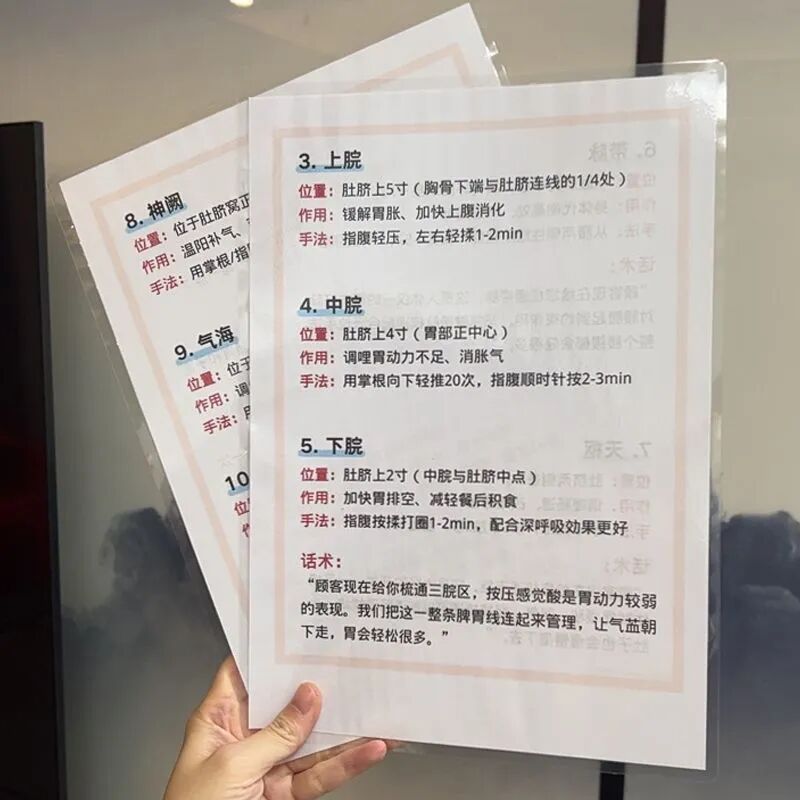 3. 上脘
位置：肚脐上5寸（胸骨下端与肚脐连线的1/4处）
作用：缓解胃胀、加快上腹消化
手法：指腹轻压，左右轻揉1-2min
4. 中脘
位置：肚脐上4寸（胃部正中心）
作用：调哩胃动力不足、消胀气
手法：用掌根向下轻推20次，指腹顺时针按2-3min
5. 下脘
位置：肚脐上2寸（中脘与肚脐中点）
作用：加快胃排空、减轻餐后积食
手法：指腹按揉打圈1-2min，配合深呼吸效果更好
话术：
“顾客现在给你梳通三脘区，按压感觉酸是胃动力较弱
的表现。我们把这一整条脾胃线连起来管理，让气茁朝
下走，胃会轻松很多。”
8. 神阙
位置：位于肚脐窝正
作用：温阳补气、
手法：用掌根/指
9. 气海
位置：位于
作用：调
手法：用
10
位置：
作用：
手法：
6. 带脉
话术：
7. 天枢
话术：